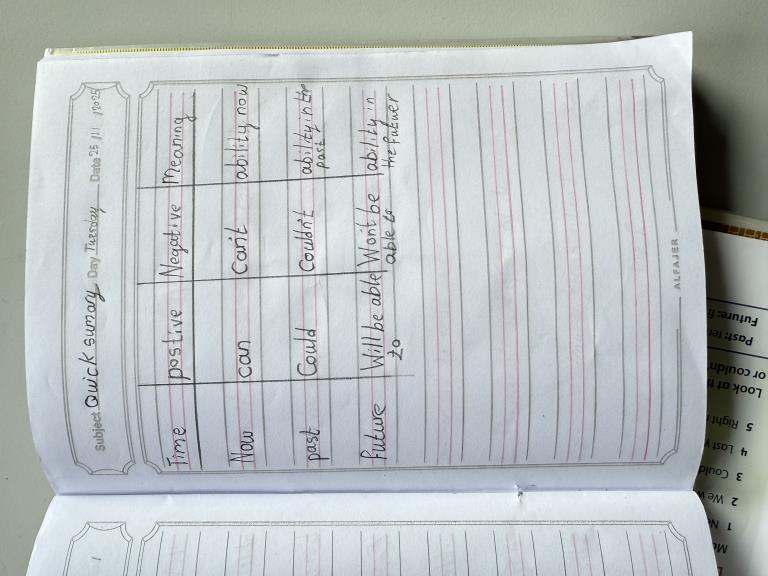 Subject Quick sumary Day Tuesday Date 25/11/2025
Time postive Negative Meaning
Now can can't ability now
past Could Couldn't ability in the
past
Future Will be able Won't be ability in
to able to the futuer
ALFAJER
1
Future:
Past:
or couldn'
Look at th
5 Right
4 Last y
3 Could
2 We w
1 N